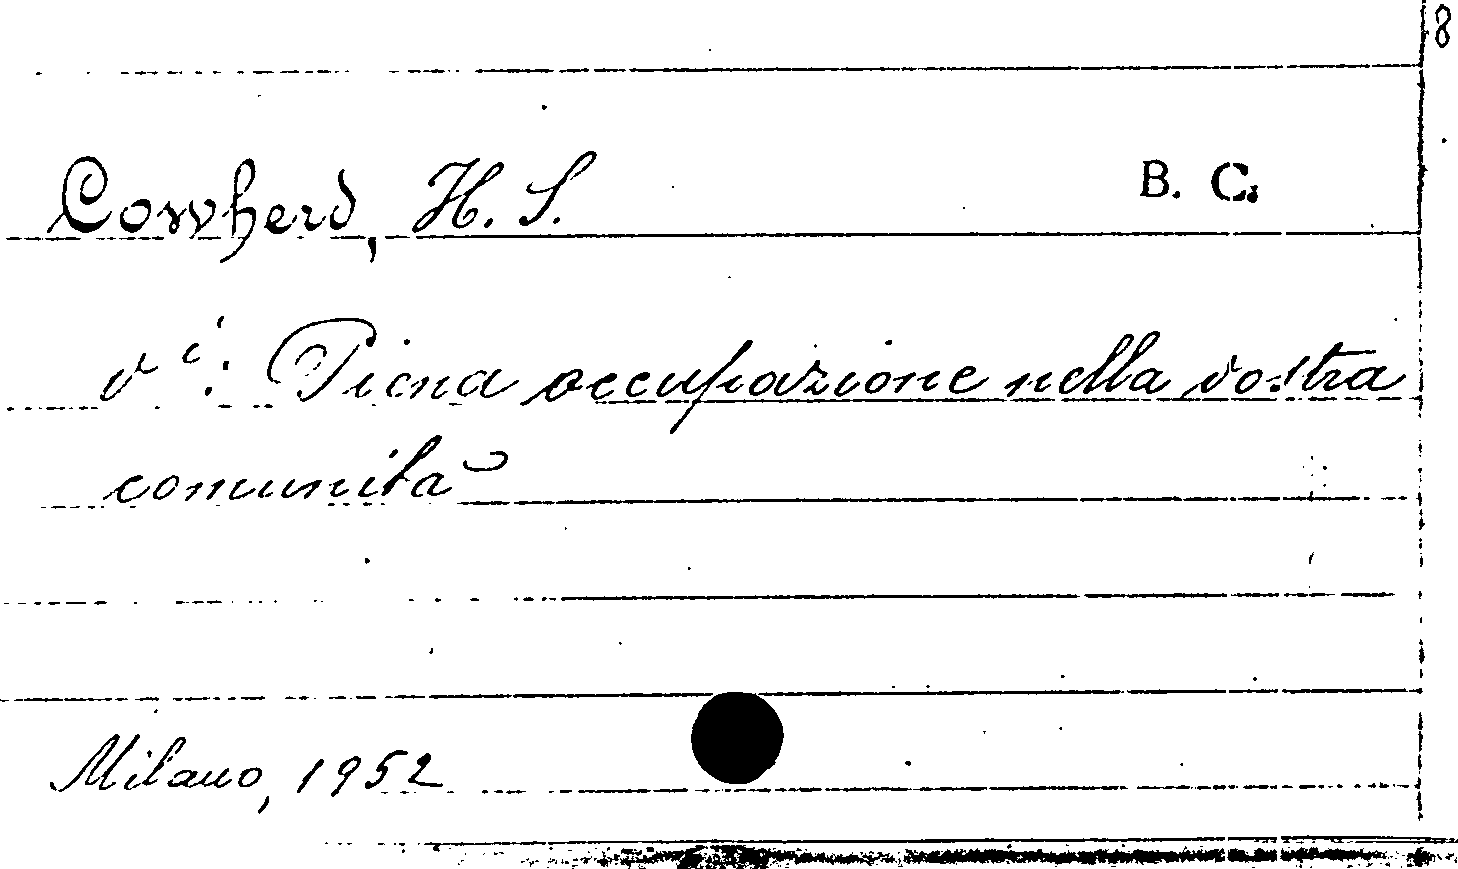 8
Cowherd, H. S. B. C.
vi: Piena occupazione nella vostra
comunità
Milano, 1952